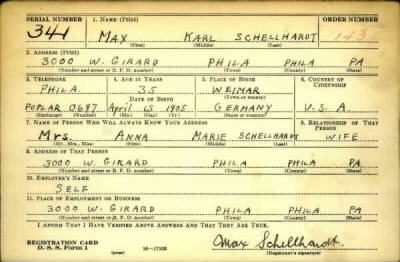 SERIAL NUMBER 1. NAME (Print) ORDER NUMBER
341 MAX KARL SCHELLHARDT
(First) (Middle) (Last)
2. ADDRESS (Print)
3000 W. GIRARD PHILA PHILA PA
(Number and street or R. F. D. number) (Town) (County) (State)
3. TELEPHONE 4. AGE IN YEARS 5. PLACE OF BIRTH 6. COUNTRY OF CITIZENSHIP
PHILA. 35 WEIMAR
DATE OF BIRTH (Town or county)
POPLAR 0697 April 13 1905 GERMANY U.S.A.
(Exchange) (Number) (Mo.) (Day) (Yr.) (State or country)
7. NAME OF PERSON WHO WILL ALWAYS KNOW YOUR ADDRESS 8. RELATIONSHIP OF THAT PERSON
Mrs. ANNA MARIE SCHELLHARDT WIFE
(Mr., Mrs., Miss) (First) (Middle) (Last)
9. ADDRESS OF THAT PERSON
3000 W. GIRARD PHILA PHILA PA
(Number and street or R. F. D. number) (Town) (County) (State)
10. EMPLOYER'S NAME
SELF
11. PLACE OF EMPLOYMENT OR BUSINESS
3000 W. GIRARD PHILA PHILA PA
(Number and street or R. F. D. number) (Town) (County) (State)
I AFFIRM THAT I HAVE VERIFIED ABOVE ANSWERS AND THAT THEY ARE TRUE.
REGISTRATION CARD
D. S. S. Form 1 (over) 16—17105 Max Schellhardt
(Registrant's signature)